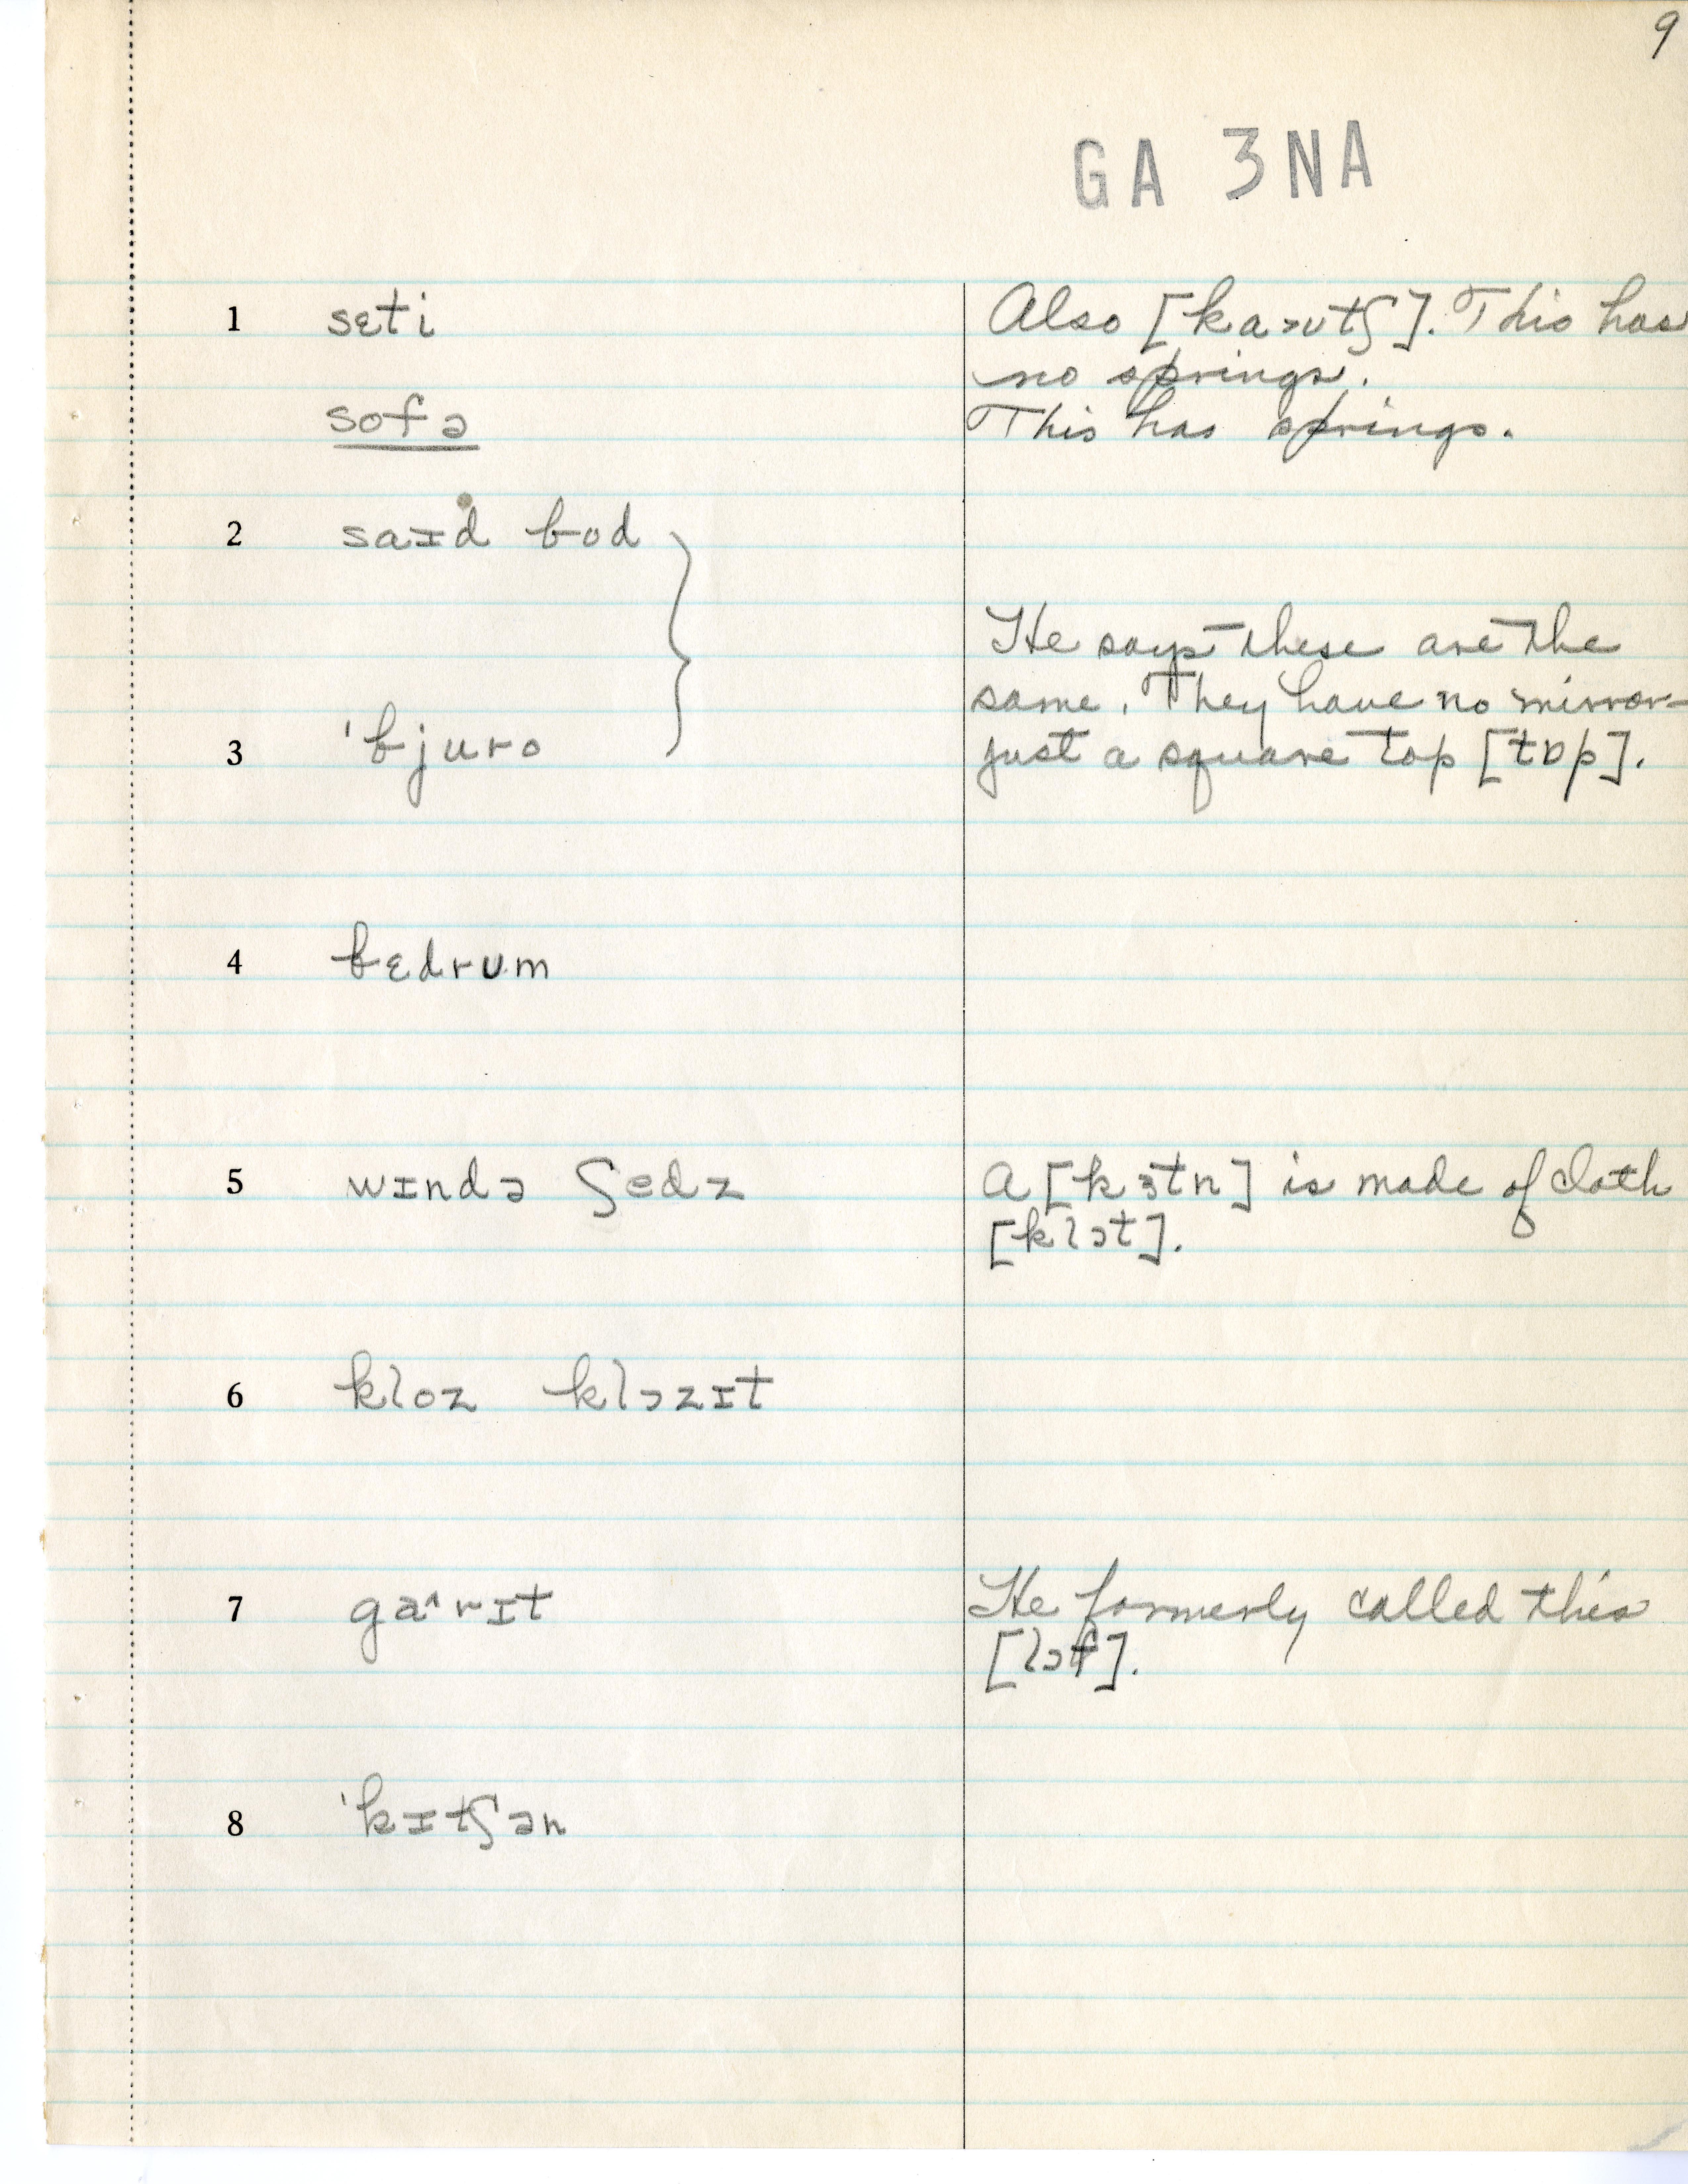 9
GA 3NA
1 sɛti Also [ka˃ʊtʃ]. This has
no springs.
sofə This has springs.
2 saɪd bod
He says these are the
same. They have no mirror—
3 ˈbjuro just a square top [tɒp].
4 bɛdrʊm
5 wɪndə ʃedz A [kɜtn] is made of cloth
[klɔt].
6 kloz klɔzɪt
7 ga^rɪt He formerly called this
[lɔf].
8 ˈkɪtʃən